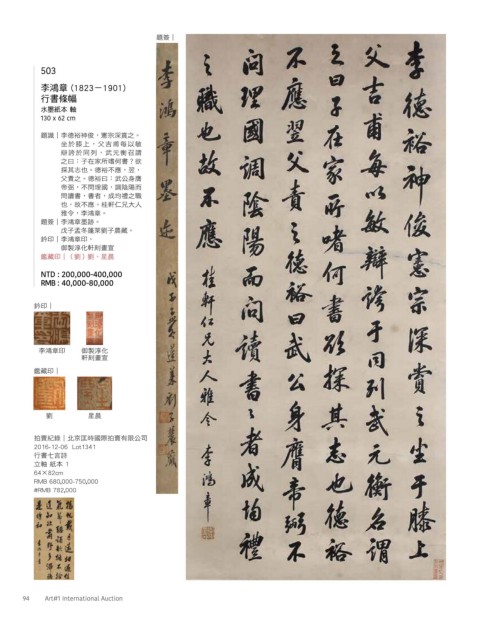 題簽｜
503
李鴻章（1823－1901）
行書條幅
水墨紙本 軸
130 x 62 cm
題識｜李德裕神俊，憲宗深賞之。
坐於膝上，父吉甫每以敏
辯誇於同列，武元衡召謂
之曰：子在家所嗜何書？欲
探其志也。德裕不應，翌，
父責之。德裕曰：武公身膺
帝弼，不問理國，調陰陽而
問讀書，書者，成均禮之職
也，故不應。桂軒仁兄大人
雅令，李鴻章。
題簽｜李鴻章墨跡。
戊子孟冬蓬萊劉子農藏。
鈐印｜李鴻章印、
御製淳化軒刻畫宣
鑑藏印｜（劉）劉、星晨
NTD : 200,000-400,000
RMB : 40,000-80,000
鈐印｜
李鴻章印
御製淳化
軒刻畫宣
鑑藏印｜
劉
星晨
拍賣紀錄｜北京匡時國際拍賣有限公司
2016-12-06 Lot1341
行書七言詩
立軸 紙本 1
64×82cm
RMB 680,000-750,000
#RMB 782,000
李鴻章墨迹
戊子孟冬蓬萊劉子農藏
李德裕神俊憲宗深賞之坐于膝上
父吉甫每以敏辯誇于同列武元衡召謂
之曰子在家所嗜何書欲探其志也德裕
不應翌父責之德裕曰武公身膺帝弼不
問理國調陰陽而問讀書書者成均禮
之職也故不應
桂軒仁兄大人雅令 李鴻章
94 Art#1 International Auction